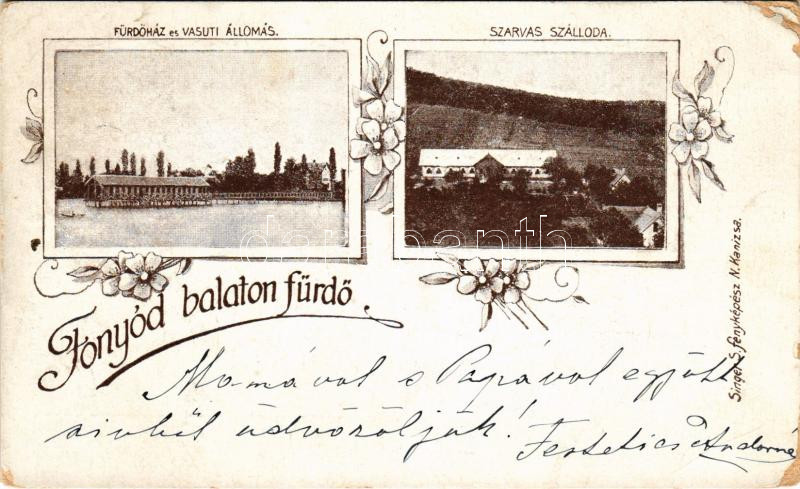 FÜRDŐHÁZ es VASUTI ÁLLOMÁS.
SZARVAS SZÁLLODA.
darabanth
Fonyód balaton fürdő.
Singer S. fényképész N. Kanizsa.
Mamával s Papával együtt
szivből üdvözöljük!
Festetics Andorné